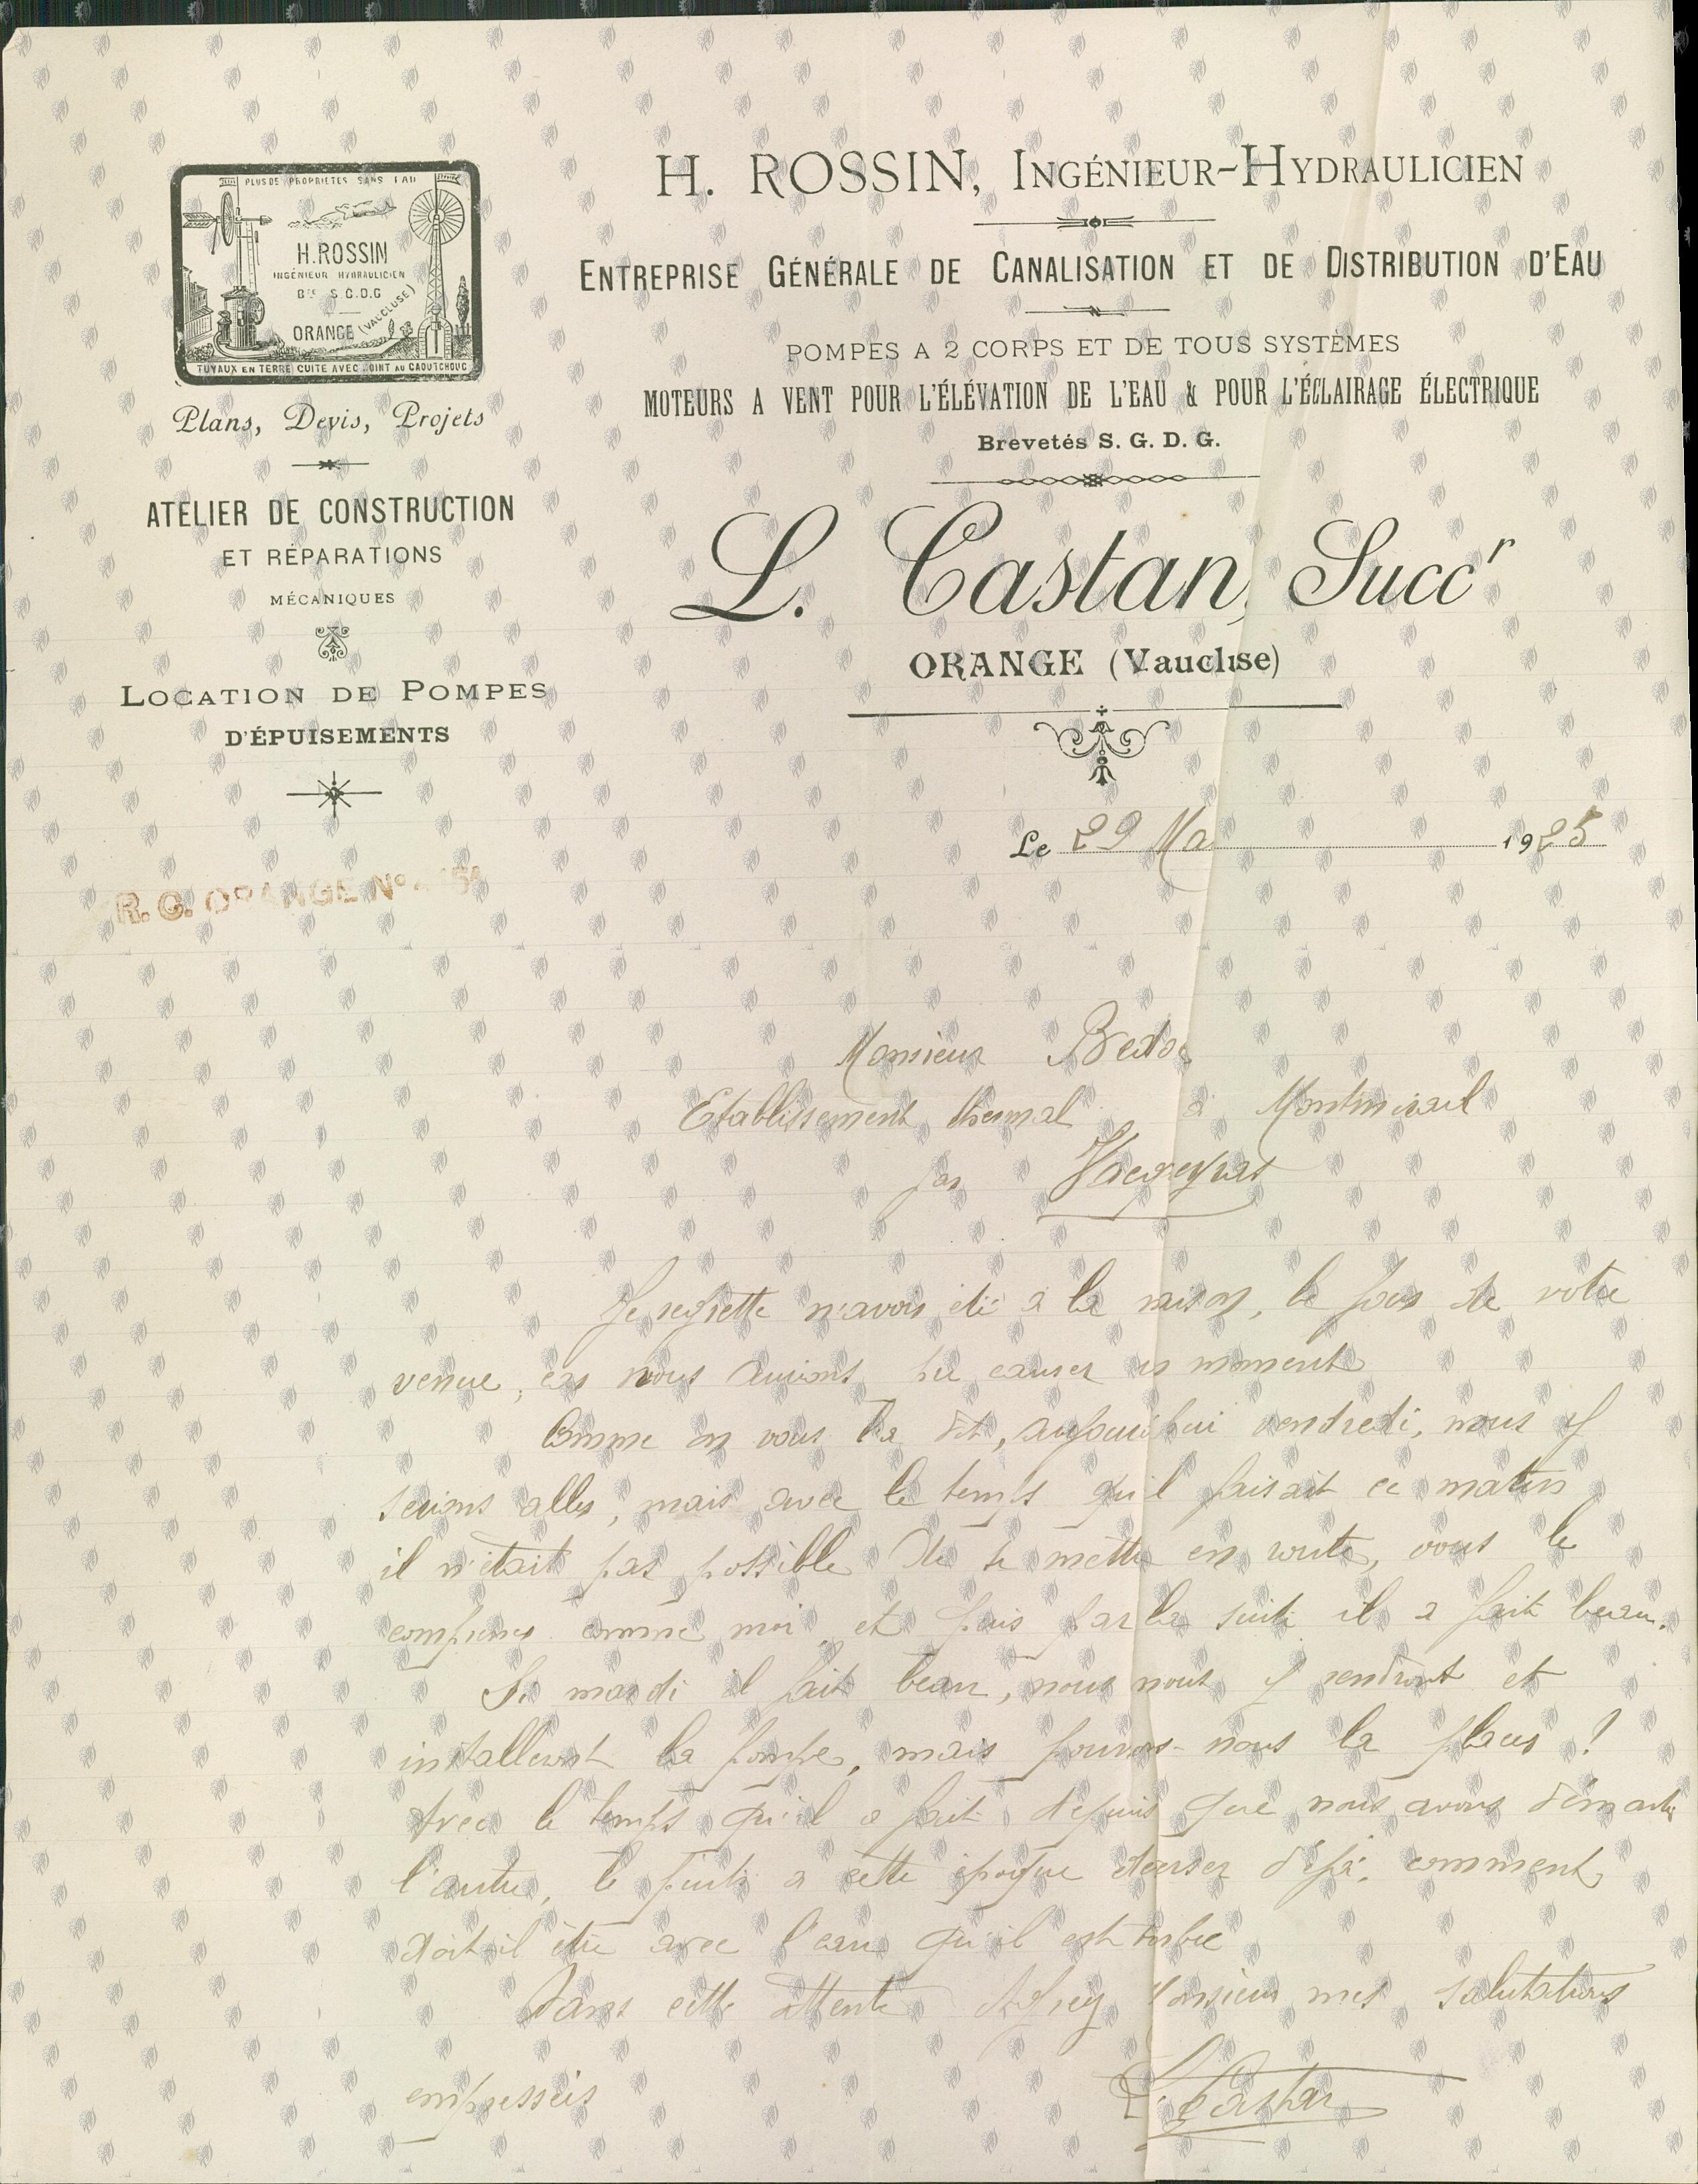 PLUS DE PROPRIETES SANS EAU
H. ROSSIN
INGÉNIEUR HYDRAULICIEN
Bté S.G.D.G
ORANGE (VAUCLUSE)
TUYAUX EN TERRE CUITE AVEC JOINT AU CAOUTCHOUC
Plans, Devis, Projets
ATELIER DE CONSTRUCTION
ET RÉPARATIONS
MÉCANIQUES
LOCATION DE POMPES
D'ÉPUISEMENTS
R. C. ORANGE N°
H. ROSSIN, INGÉNIEUR-HYDRAULICIEN
ENTREPRISE GÉNÉRALE DE CANALISATION ET DE DISTRIBUTION D'EAU
POMPES A 2 CORPS ET DE TOUS SYSTÈMES
MOTEURS A VENT POUR L'ÉLÉVATION DE L'EAU & POUR L'ÉCLAIRAGE ÉLECTRIQUE
Brevetés S. G. D. G.
L. Castan, Succr
ORANGE (Vaucluse)
Le 29 Ma 1925
Monsieur
Etablissement thermal à Montmirail
par Vacqueyras
Je regrette n'avoir été à la maison, le jour de votre
venue, car nous aurions pu causer un moment
Comme on vous l'a dit, aujourd'hui vendredi, nous y
serions allés, mais avec le temps qu'il faisait ce matin
il n'était pas possible de se mettre en route, vous le
comprenez comme moi, et puis par la suite il a fait beau.
Si mardi il fait beau, nous nous y rendront et
installeront la pompe, mais pourrons-nous la placer ?
Avec le temps qu'il a fait depuis que nous avons démonté
l'autre, le puits a cette époque déjà, comment
doit-il être avec l'eau qu'il est tombé
Dans cette attente Agréez Monsieur mes salutations
empressées
L. Castan